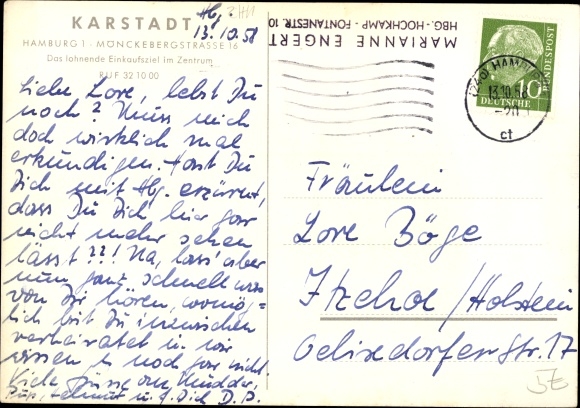 KARSTADT
HAMBURG 1 - MÖNCKEBERGSTRASSE 16
Das lohnende Einkaufsziel im Zentrum
RUF 32 10 00
Hbg.
13.10.58
Liebe Lore, lebst Du
noch? Muss mich
doch wirklich mal
erkundigen. Hast Du
Dich mit Hbg. erzürnt,
dass Du Dich hier gar
nicht mehr sehen
lässt??! Na, lass' aber
nun ganz schnell was
von Dir hören, womög=
lich bist Du inzwischen
verheiratet u. wir
wissen es noch gar nicht.
Viele Grüsse von
Helmut u. D.P.
MARIANNE ENGERT
HBG.-HOCHKAMP - FONTANESTR. 10
DEUTSCHE
BUNDESPOST
10
HAMBURG
13.10.58
-20
ct
Fräulein
Lore Böge
Itzehoe/Holstein
Oelixdorfer Str. 17